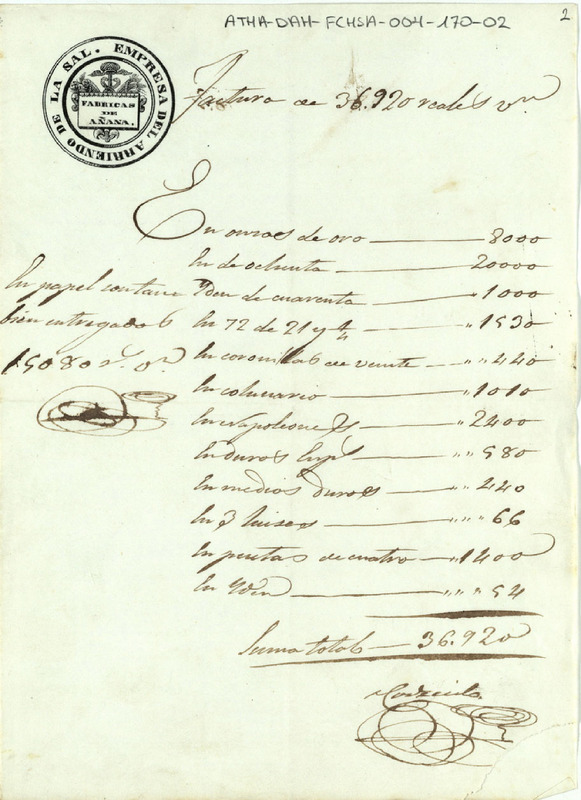 ATHA-DAH-FCHSA-004-170-02
2
EMPRESA DEL ARRIENDO DE LA SAL.
FABRICAS
DE
AÑANA.
Factura de 36.920 reales vn
En onzas de oro 8000
En de ochenta 20000
Yden de cuarenta " 1000
En 72 de 21 y 1/4 " 1530
En coronillas de veinte " " 440
En colunario " 1010
En Napoleones 2400
En duros Espl " " 580
En medios duros " " 440
En 3 luises " " " 66
En pesetas de cuatro " 1400
En Yden " " " 54
Suma total 36.920
En papel contante
bien entregados
15080 rs. vn.